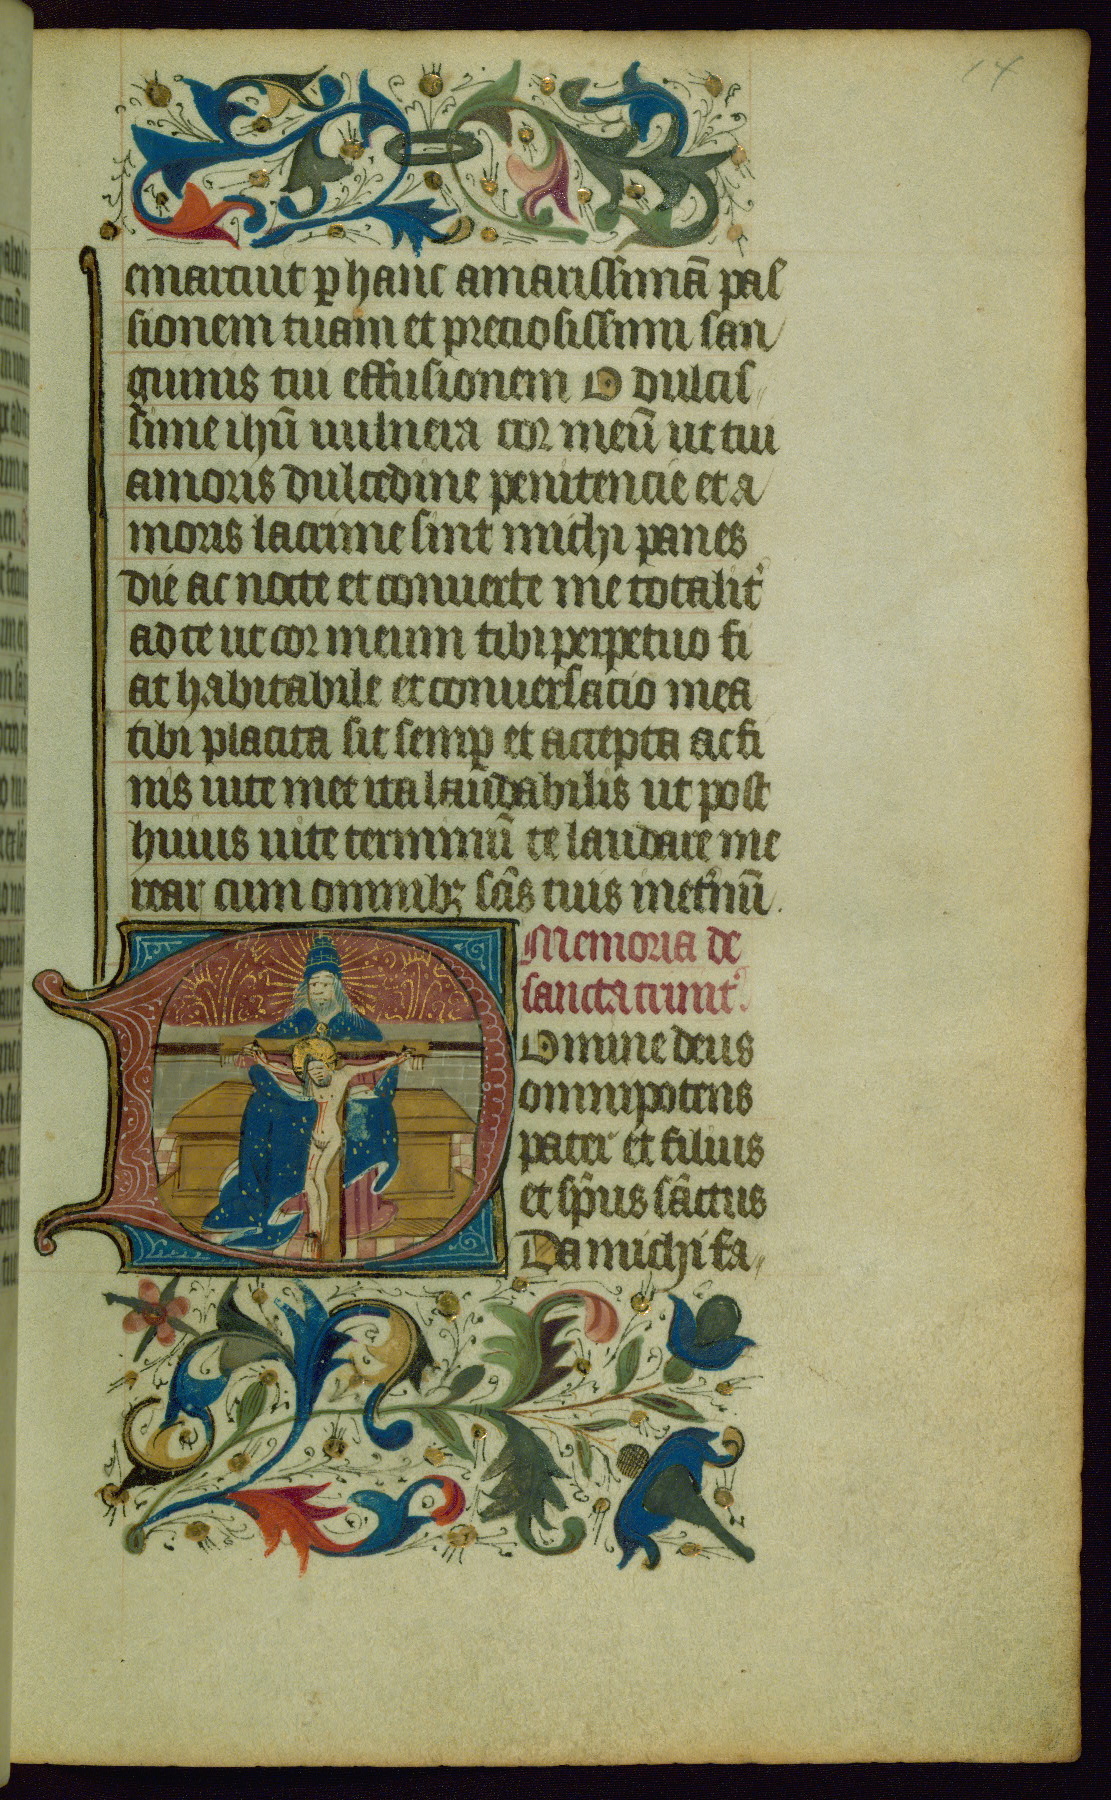 14
emarciut ꝑ hanc amarissimā pas
sionem tuam et preciosissimi san
guinis tui effusionem O dulcis
sime ihū uulnera cor meū ut tui
amoris dulcedine penitencie et a
moris lacrime sint michi panes
die ac nocte et conuerte me totalit᷑
ad te ut cor meum tibi perpetuo fi
at habitabile et conuersacio mea
tibi placita sit semꝑ et accepta ac fi
nis uite mee ita laudabilis ut post
huius uite terminū te laudare me
rear cum omnibꝫ scīs tuis inet᷑nū.
Memoria de
sancta trinit᷑.
Domine deus
omnipotens
pater et filius
et sp̄us sāctus
Da michi fa